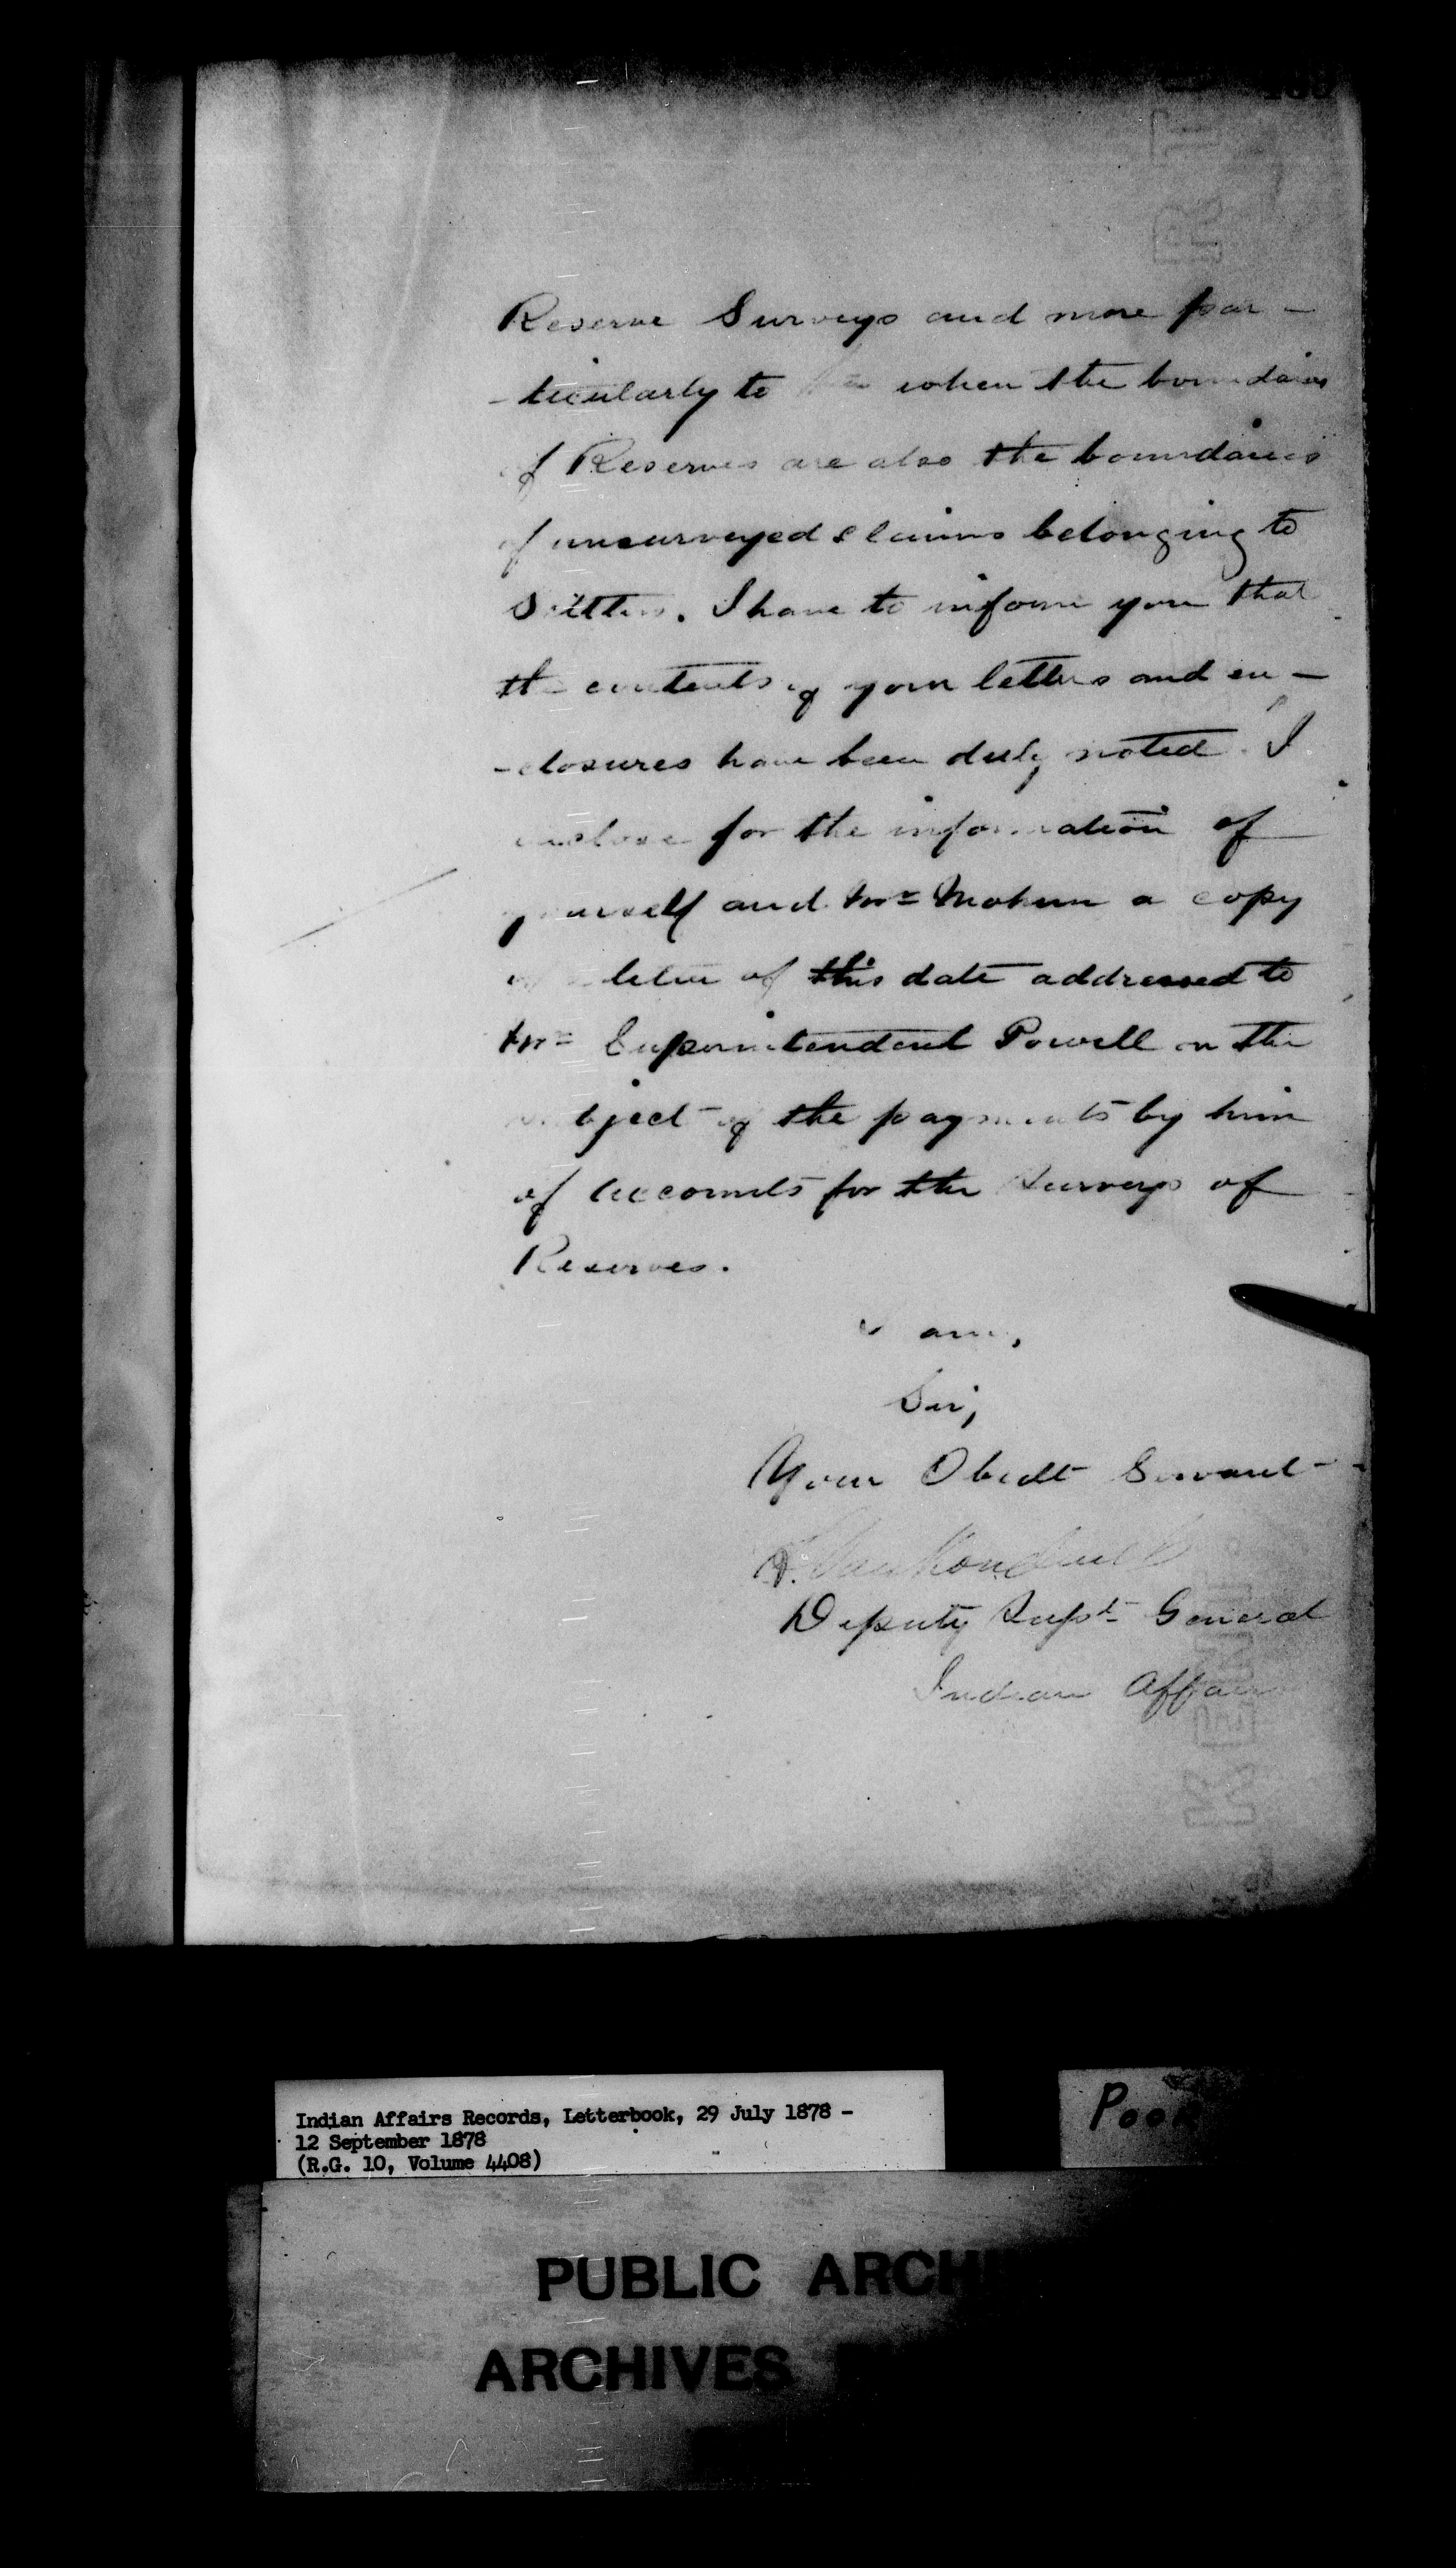 Reserve Surveys and more par-
-ticularly to when the boundaries
of Reserves are also the boundaries
of unsurveyed claims belonging to
Settlers. I have to inform you that
the contents of your letters and en-
-closures have been duly noted. I
enclose for the information of
yourself and Mr Mohun a copy
of letter of this date addressed to
Mr Superintendent Powell on the
subject of the payments by him
of accounts for the Surveys of
Reserves.
I am,
Sir,
Your Obedt Servant
L. Vankoughnet
Deputy Supt General
Indian Affairs
Indian Affairs Records, Letterbook, 29 July 1878 -
12 September 1878
(R.G. 10, Volume 4408)
PUBLIC ARCHI
ARCHIVES